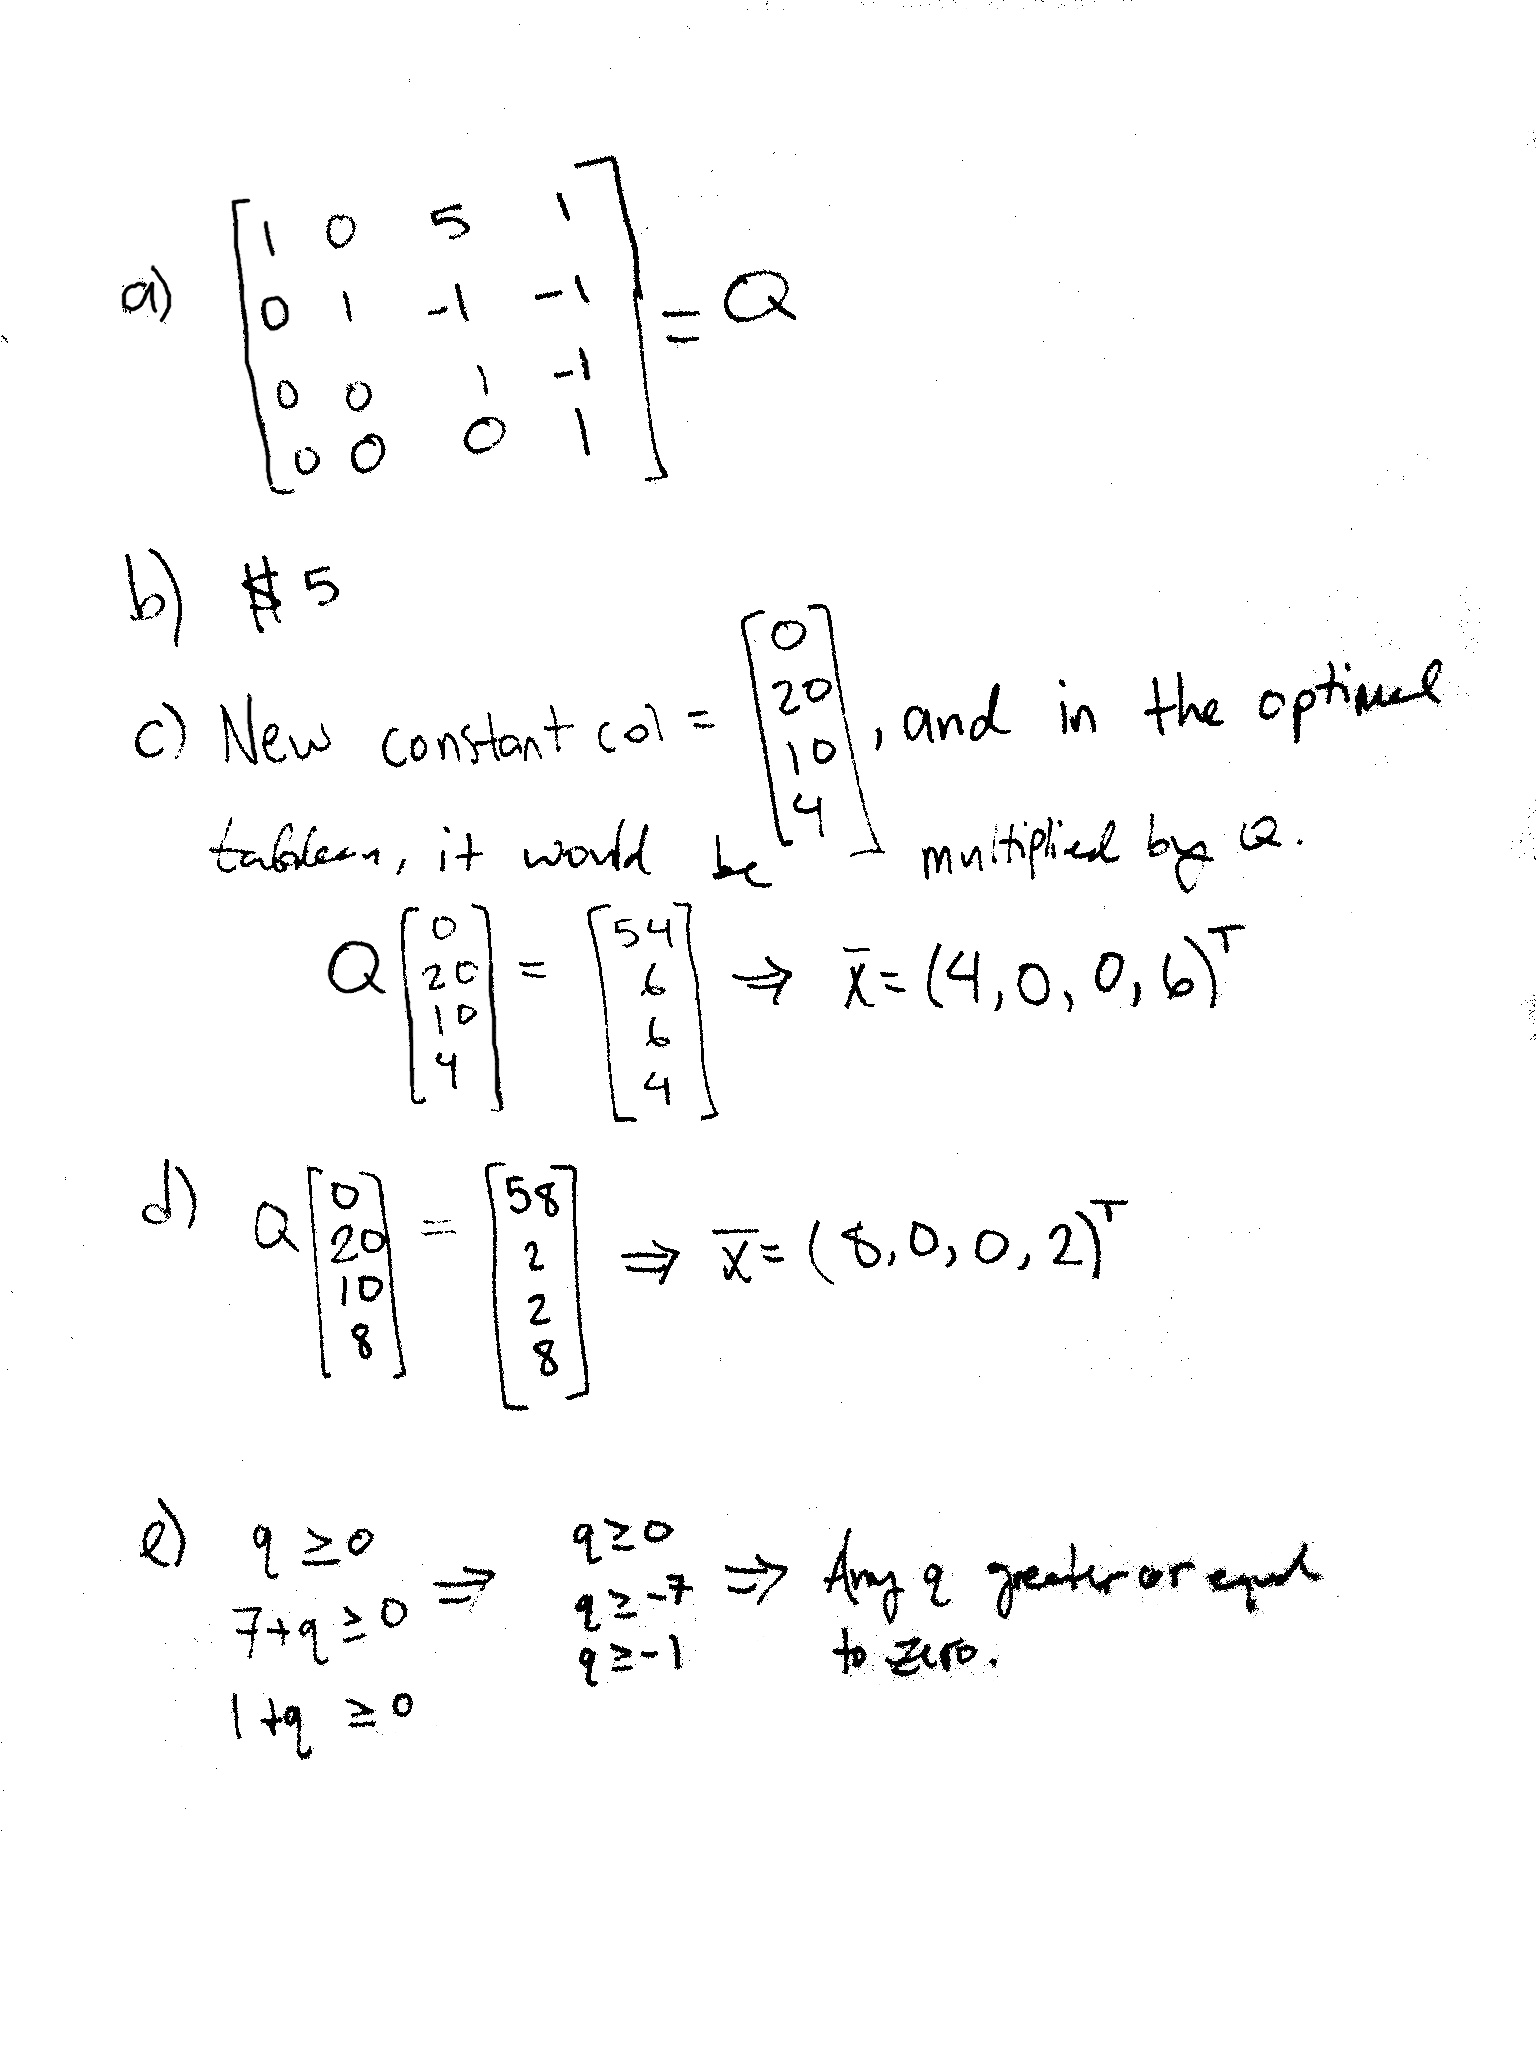 a) [1 0 5 1
0 1 -1 -1
0 0 1 -1
0 0 0 1] = Q
b) $5
c) New constant col = [0 20 10 4], and in the optimal
tableau, it would be multiplied by Q.
Q [0 20 10 4] = [54 6 6 4] ⇒ x̄ = (4, 0, 0, 6)ᵀ
d) Q [0 20 10 8] = [58 2 2 8] ⇒ x̄ = (8, 0, 0, 2)ᵀ
e) q ≥ 0 ⇒ q ≥ 0 ⇒ Any q greater or equal
7+q ≥ 0 q ≥ -7 to zero.
1+q ≥ 0 q ≥ -1